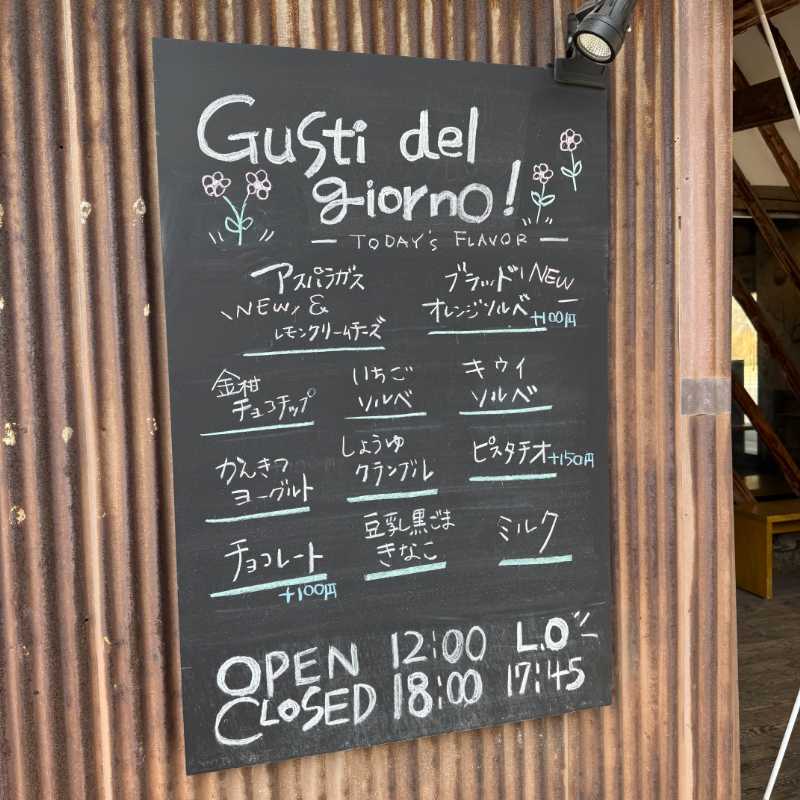 Gusti del
giorno!
— TODAY's FLAVOR —
アスパラガス
\NEW/ &
レモンクリームチーズ
ブラッド \NEW/
オレンジソルベ +100円
金柑
チョコチップ
いちご
ソルベ
キウイ
ソルベ
かんきつ
ヨーグルト
しょうゆ
クランブル
ピスタチオ +150円
チョコレート
+100円
豆乳黒ごま
きなこ
ミルク
OPEN 12:00 L.O
CLOSED 18:00 17:45